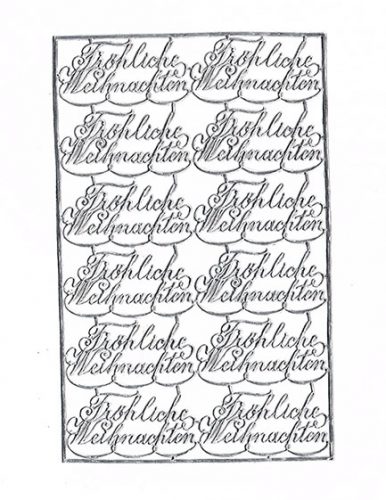 Fröhliche Fröhliche
Weihnachten Weihnachten
Fröhliche Fröhliche
Weihnachten Weihnachten
Fröhliche Fröhliche
Weihnachten Weihnachten
Fröhliche Fröhliche
Weihnachten Weihnachten
Fröhliche Fröhliche
Weihnachten Weihnachten
Fröhliche Fröhliche
Weihnachten Weihnachten